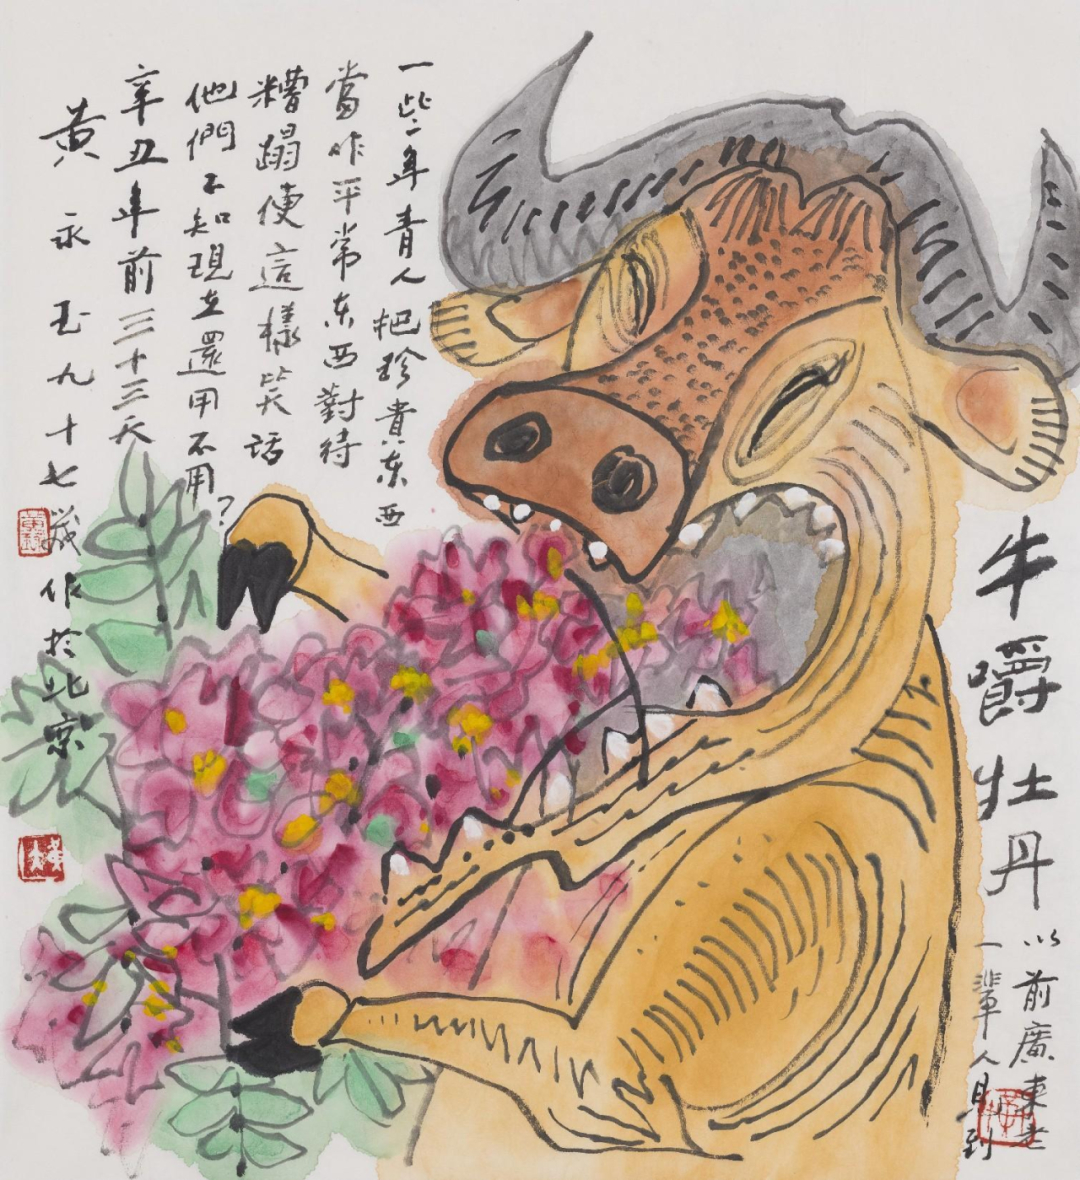 牛嚼牡丹
以前廣東老
一輩人見到
一些年青人把珍貴东西
當昨平常东西對待
糟蹋便這樣笑話
他們不知現在還用不用?
辛丑年前三十三天
黃永玉九十七歲作於北京